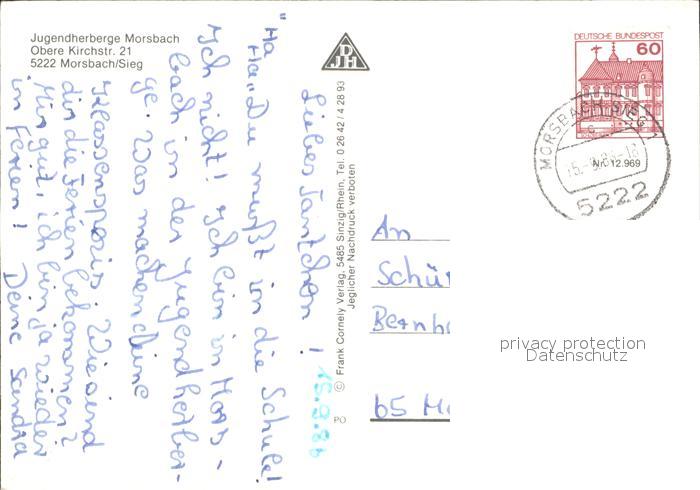 Jugendherberge Morsbach
Obere Kirchstr. 21
5222 Morsbach/Sieg
DJH
DEUTSCHE BUNDESPOST
60
MORSBACH, SIEG 1
Nr. 12.969
5222
Liebes Tantchen!
"Ha
Ha" Du mußt in die Schule!
Ich nicht! Ich bin in Mors-
bach in der Jugendherber-
ge. Was machen Deine
Klassenspezis. Wie sind
dir die Ferien bekommen?
Mir gut, ich bin ja wieder
in Ferien!
Deine Sandra
© Frank Cornely Verlag, 5485 Sinzig/Rhein, Tel. 0 26 42 / 4 28 93
Jeglicher Nachdruck verboten
PO
An
Schü
Bernh
65 M
privacy protection
Datenschutz